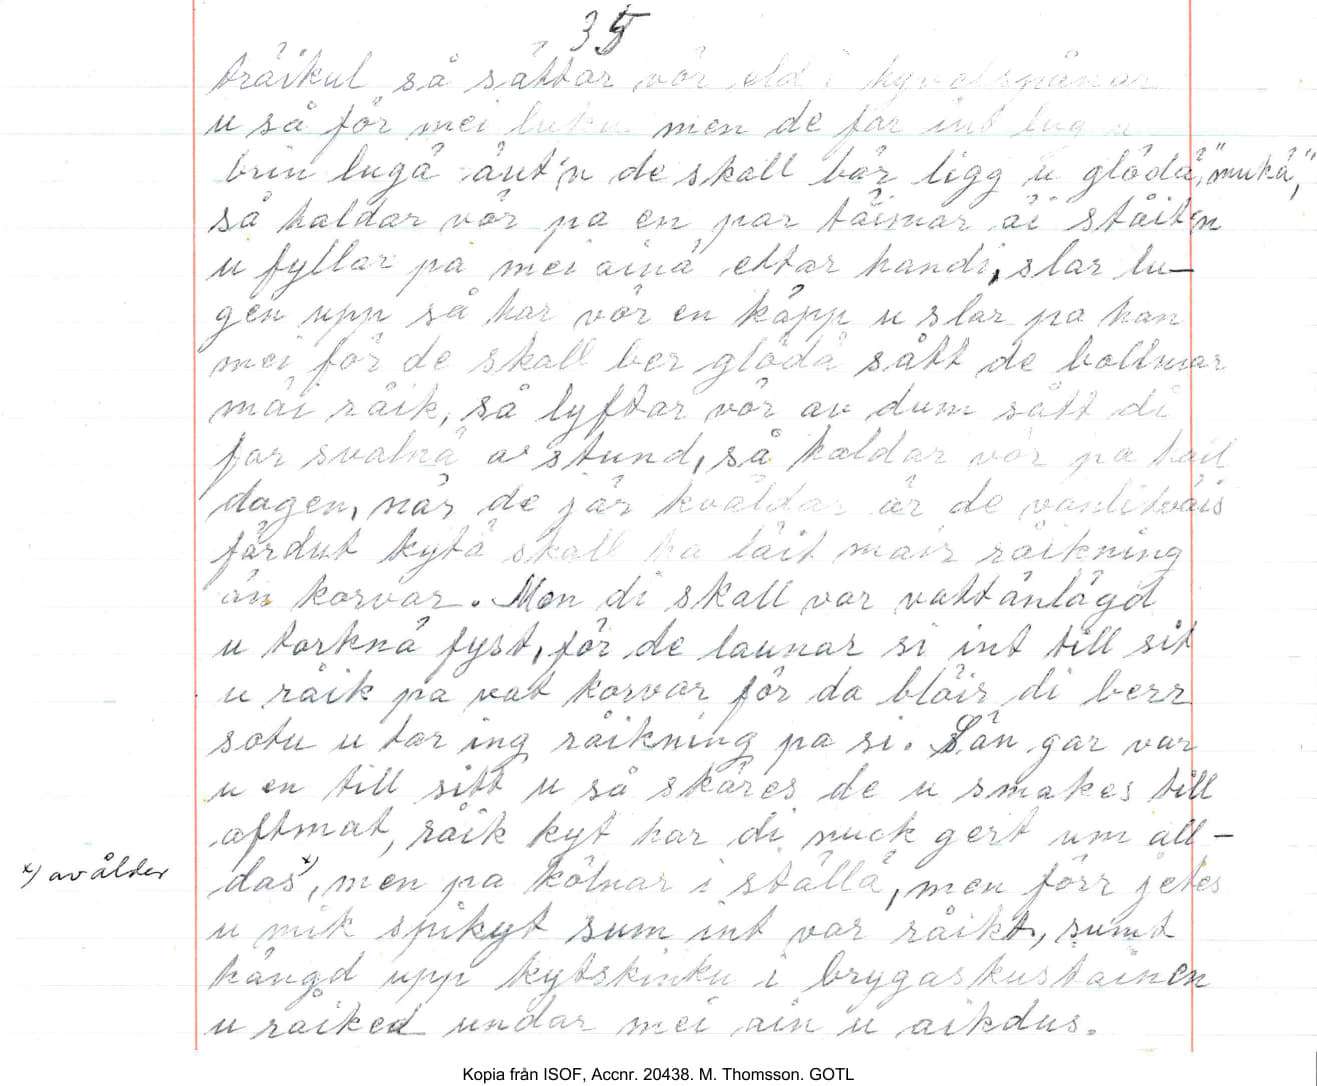 35
träikul så sättar vör eld i hyvelspånar
u så får mei luku men de far int lug u
brin lugä änt'n de skall bär ligg u glödä, "mukä",
så haldar vör pa en par täimar äi stäit'n
u fyllar pa mei ainä ettar handi, slar lu-
gen upp så har vör en käpp u slar pa han
mei för de skall ber glödä sått de bollmar
mäi räik, så lyftar vör av dum sått di
far svalnä a stund, så haldar vör pa hail
dagen, när de jär kväldar är de vanlitväis
färdut kytä skall ha läit mair räikning
än korvar. Men di skall var vattänlägd
u torknä fyst, för de launar si int till sit
u räik pa vat korvar för da bläir di berr
sotu u tar ing räikning pa si. Sän gar var
u en till sitt u så skäres de u smakes till
aftmat, räik kyt har di nuck gert um all-
das x), men pa kölnar i ställä, men förr jetes
u mik spikyt sum int var räikt, sumt
hängd upp kytskinku i brygaskustainen
u räiked undar mei ain u aikdus.
x) av ålder
Kopia från ISOF, Accnr. 20438. M. Thomsson. GOTL